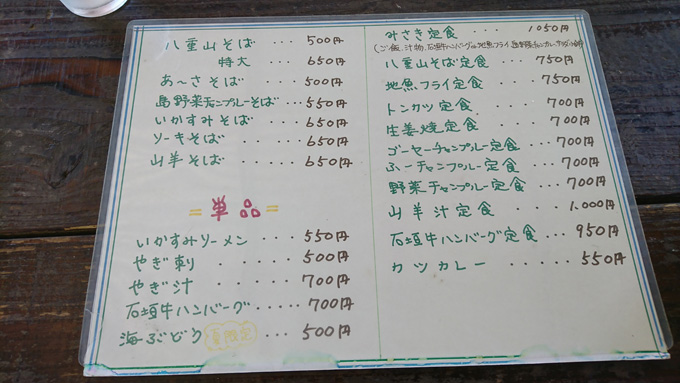 八重山そば ... 500円
特大 ... 650円
あ〜さそば ... 500円
島野菜チャンプルーそば ... 550円
いかすみそば ... 650円
ソーキそば ... 650円
山羊そば ... 650円
=単品=
いかすみソーメン ... 550円
やぎ刺 ... 500円
やぎ汁 ... 700円
石垣牛ハンバーグ ..... 700円
海ぶどう 夏限定 ... 500円
みさき定食 ... 1050円
(ご飯、汁物、石垣牛ハンバーグ
八重山そば定食 ... 750円
地魚フライ定食 ... 750円
トンカツ定食 ... 700円
生姜焼定食 ... 700円
ゴーヤーチャンプルー定食 ... 700円
ふーチャンプルー定食 ... 700円
野菜チャンプルー定食 ... 700円
山羊汁定食 ... 1,000円
石垣牛ハンバーグ定食 ... 950円
カツカレー ...... 550円